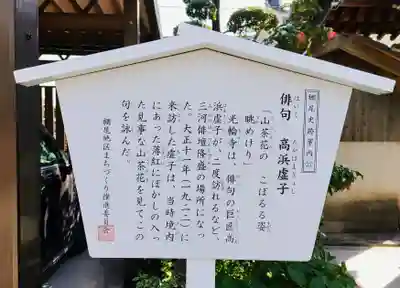 棚尾史跡案内公
俳句　高浜虚子
はいく　たかはまきょし
「山茶花の　こぼるる姿
眺めけり」
光輪寺は、俳句の巨匠高
浜虚子が、二度訪れるなど、
三河俳壇隆盛の場所になっ
た。大正十一年（一九二二）に
来訪した虚子は、当時境内
にあった薄紅にぼかしの入っ
た見事な山茶花を見てこの
句を詠んだ。
棚尾地区まちづくり推進委員会